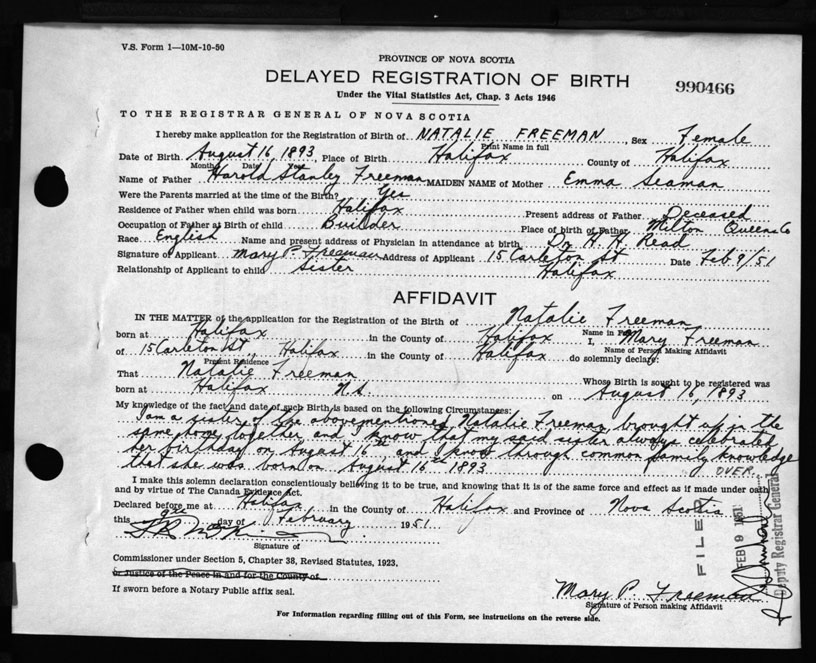 V.S. Form 1—10M-10-50
PROVINCE OF NOVA SCOTIA
DELAYED REGISTRATION OF BIRTH
990466
Under the Vital Statistics Act, Chap. 3 Acts 1946
TO THE REGISTRAR GENERAL OF NOVA SCOTIA
I hereby make application for the Registration of Birth of NATALIE FREEMAN, Sex Female
Print Name in full
Date of Birth August 16, 1893, Place of Birth Halifax County of Halifax
Month Date Year
Name of Father Harold Stanley Freeman MAIDEN NAME of Mother Emma Seaman
Were the Parents married at the time of the Birth? Yes
Residence of Father when child was born Halifax Present address of Father Deceased
Occupation of Father at Birth of child Builder Place of birth of Father Milton Queens Co
Race English Name and present address of Physician in attendance at birth Dr H. H. Read
Signature of Applicant Mary P. Freeman Address of Applicant 15 Carleton St Date Feb 9/51
Relationship of Applicant to child Sister Halifax
AFFIDAVIT
IN THE MATTER of the application for the Registration of the Birth of Natalie Freeman
Name in Full
born at Halifax in the County of Halifax I, Mary Freeman
Name of Person Making Affidavit
of 15 Carleton St., Halifax in the County of Halifax do solemnly declare:
Present Residence
That Natalie Freeman Whose Birth is sought to be registered was
born at Halifax N.S. on August 16, 1893
My knowledge of the fact and date of such Birth is based on the following Circumstances:
I am a sister of the above mentioned Natalie Freeman brought up in the
same home together and know that my said sister always celebrated
her birthday on August 16th, and I know through common family knowledge
that she was born on August 16th 1893 OVER
I make this solemn declaration conscientiously believing it to be true, and knowing that it is of the same force and effect as if made under oath
and by virtue of The Canada Evidence Act.
Declared before me at Halifax in the County of Halifax and Province of Nova Scotia
this 9th day of February 1951
Signature of
Commissioner under Section 5, Chapter 38, Revised Statutes, 1923.
or Justice of the Peace in and for the County of
If sworn before a Notary Public affix seal.
Mary P. Freeman
Signature of Person making Affidavit
For Information regarding filling out of this Form, see instructions on the reverse side.
FILED
FEB 9 1951
Deputy Registrar General